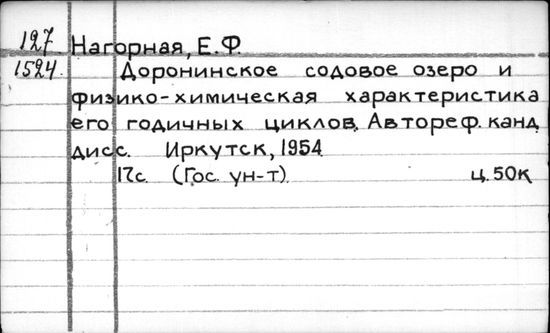 127. Нагорная, Е.Ф.
1524. Доронинское содовое озеро и
физико-химическая характеристика
его годичных циклов. Автореф. канд
дисс. Иркутск, 1954
17с. (Гос. ун-т) ц. 50к